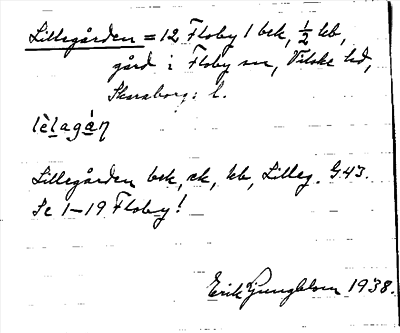 Lillegården = 12 Floby 1 bek, ½ kb,
gård i Floby sn, Vilske hd,
Skaraborgs l.
lèlagán
Lillegården bek, ek, kb, Lilleg. G.43.
Se 1-19 Floby!
Erik Ljungblom 1938.